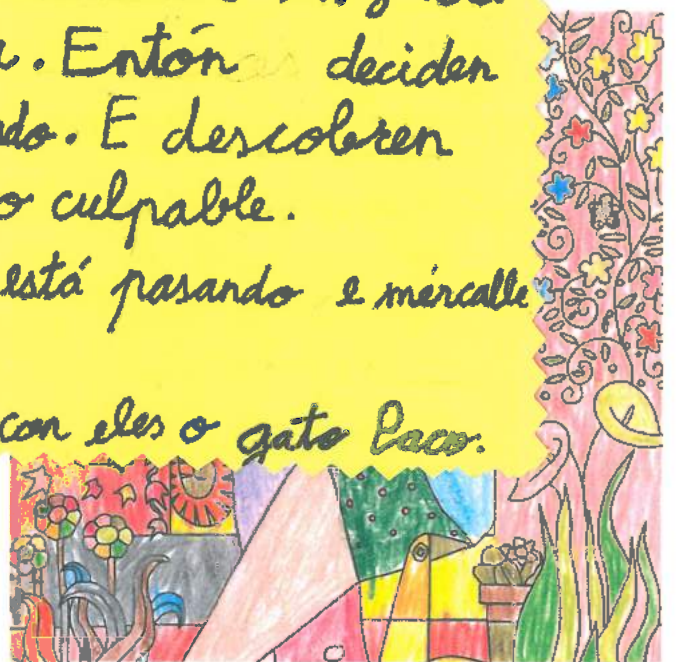 Entón deciden
do. E descobren
o culpable.
está pasando e mércalle
con eles o gato Paco.